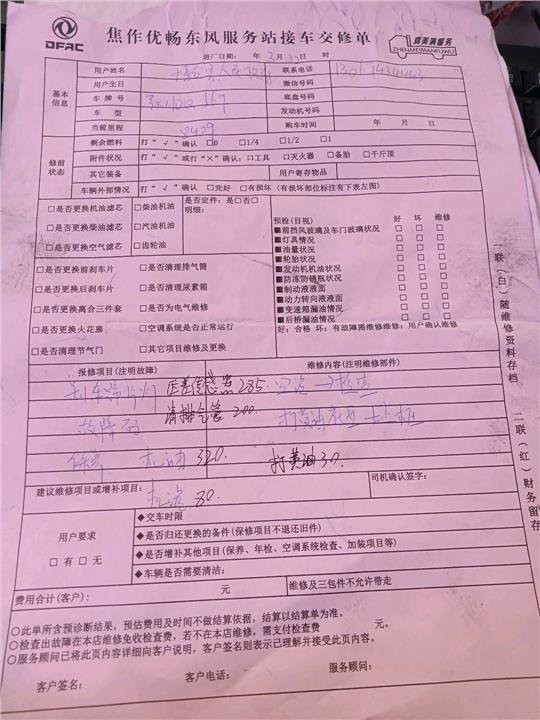 DFAC
焦作优畅东风服务站接车交修单
真美满服务
ZHENMEIMANFUWU
进厂日期: 年 3 月 13 日 时
基本信息
用户姓名 联系电话
用户生日 微信号码
车牌号 底盘号码
车型 发动机号码
当前里程 购车时间 年 月 日
修前状态
剩余燃料 打“√”确认 □0 □1/4 □1/2 □1
附件状况 打“√”或打“×”确认：□工具 □灭火器 □备胎 □千斤顶
其它装备 用户寄存物品
车辆外部情况 打“√”确认 □完好 □有损坏（有损坏部位标注有下表左图）
□是否更换机油滤芯 □柴油机油 是否定件：是□否□
□是否更换柴油滤芯 □汽油机油 明细：
□是否更换空气滤芯 □齿轮油
□是否更换前刹车片 □是否清理排气筒
□是否更换后刹车片 □是否清理尿素箱
□是否更换离合三件套 □是否为电气维修
□是否更换火花塞 □空调系统是否正常运行
□是否清理节气门 □其它项目维修及更换
预检(目视) 好 坏 维修
■前挡风玻璃及车门玻璃状况 □ □ □
■灯具情况 □ □ □
■油量状况 □ □ □
■轮胎状况 □ □ □
■发动机机油状况 □ □ □
■防冻防锈瓶状况 □ □ □
■制动液液面 □ □ □
■动力转向液液面 □ □ □
■变速箱漏油情况 □ □ □
■后桥漏油情况 □ □ □
好：合格 坏：有故障圈维修维修：用户确认维修
报修项目(注明故障) 维修内容(注明维修部件)
刹车 片灯 压差传感器 285.
故障码 清排气管 200. 打黄油
保养 机油 320. 打黄油 30.
建议维修项目或增补项目： 司机确认签字：
机滤 80.
用户要求
□有 □无
◆交车时限
◆是否归还更换的备件(保修项目不退还旧件)
◆是否增补其他项目(保养、年检、空调系统检查、加装项目等)
◆车辆是否需要清洁：
费用合计(客户)： 元 维修及三包件不允许带走
○此单所含预诊断结果，预估费用及时间不做结算依据，结算以结算单为准。
○检查出故障在本店维修免收检查费，若不在本店维修，需支付检查费 元。
○服务顾问已将此页内容详细向客户说明，客户签名则表示已理解并接受此页内容。
客户签名： 客户电话： 服务顾问：
一联（白）随维修资料存档
二联（红）财务留存